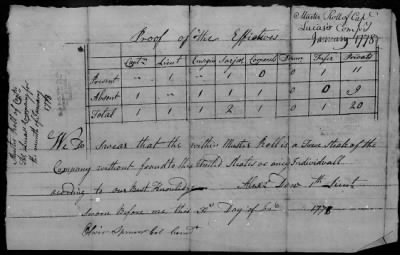 Muster Roll of Capt
Lucas's Compy
January 1778
Proof of the Effectives
Capts Lieut Ensigns Sarjts Corporals Drum Fifer Privates
Present 1 1 1 0 1 11
Absent 1 1 1 1 0 9
Total 1 1 1 2 1 1 20
Muster Roll of Capt
Lucas's Compy for
the month of January
1778
We Do Swear that the within Muster Roll is a True State of the
Company without fraud to the United States or any Individuall
according to our Best Knowledge 1st Lieut
Sworn Before me this Day of 1778
Oliver Spencer Col